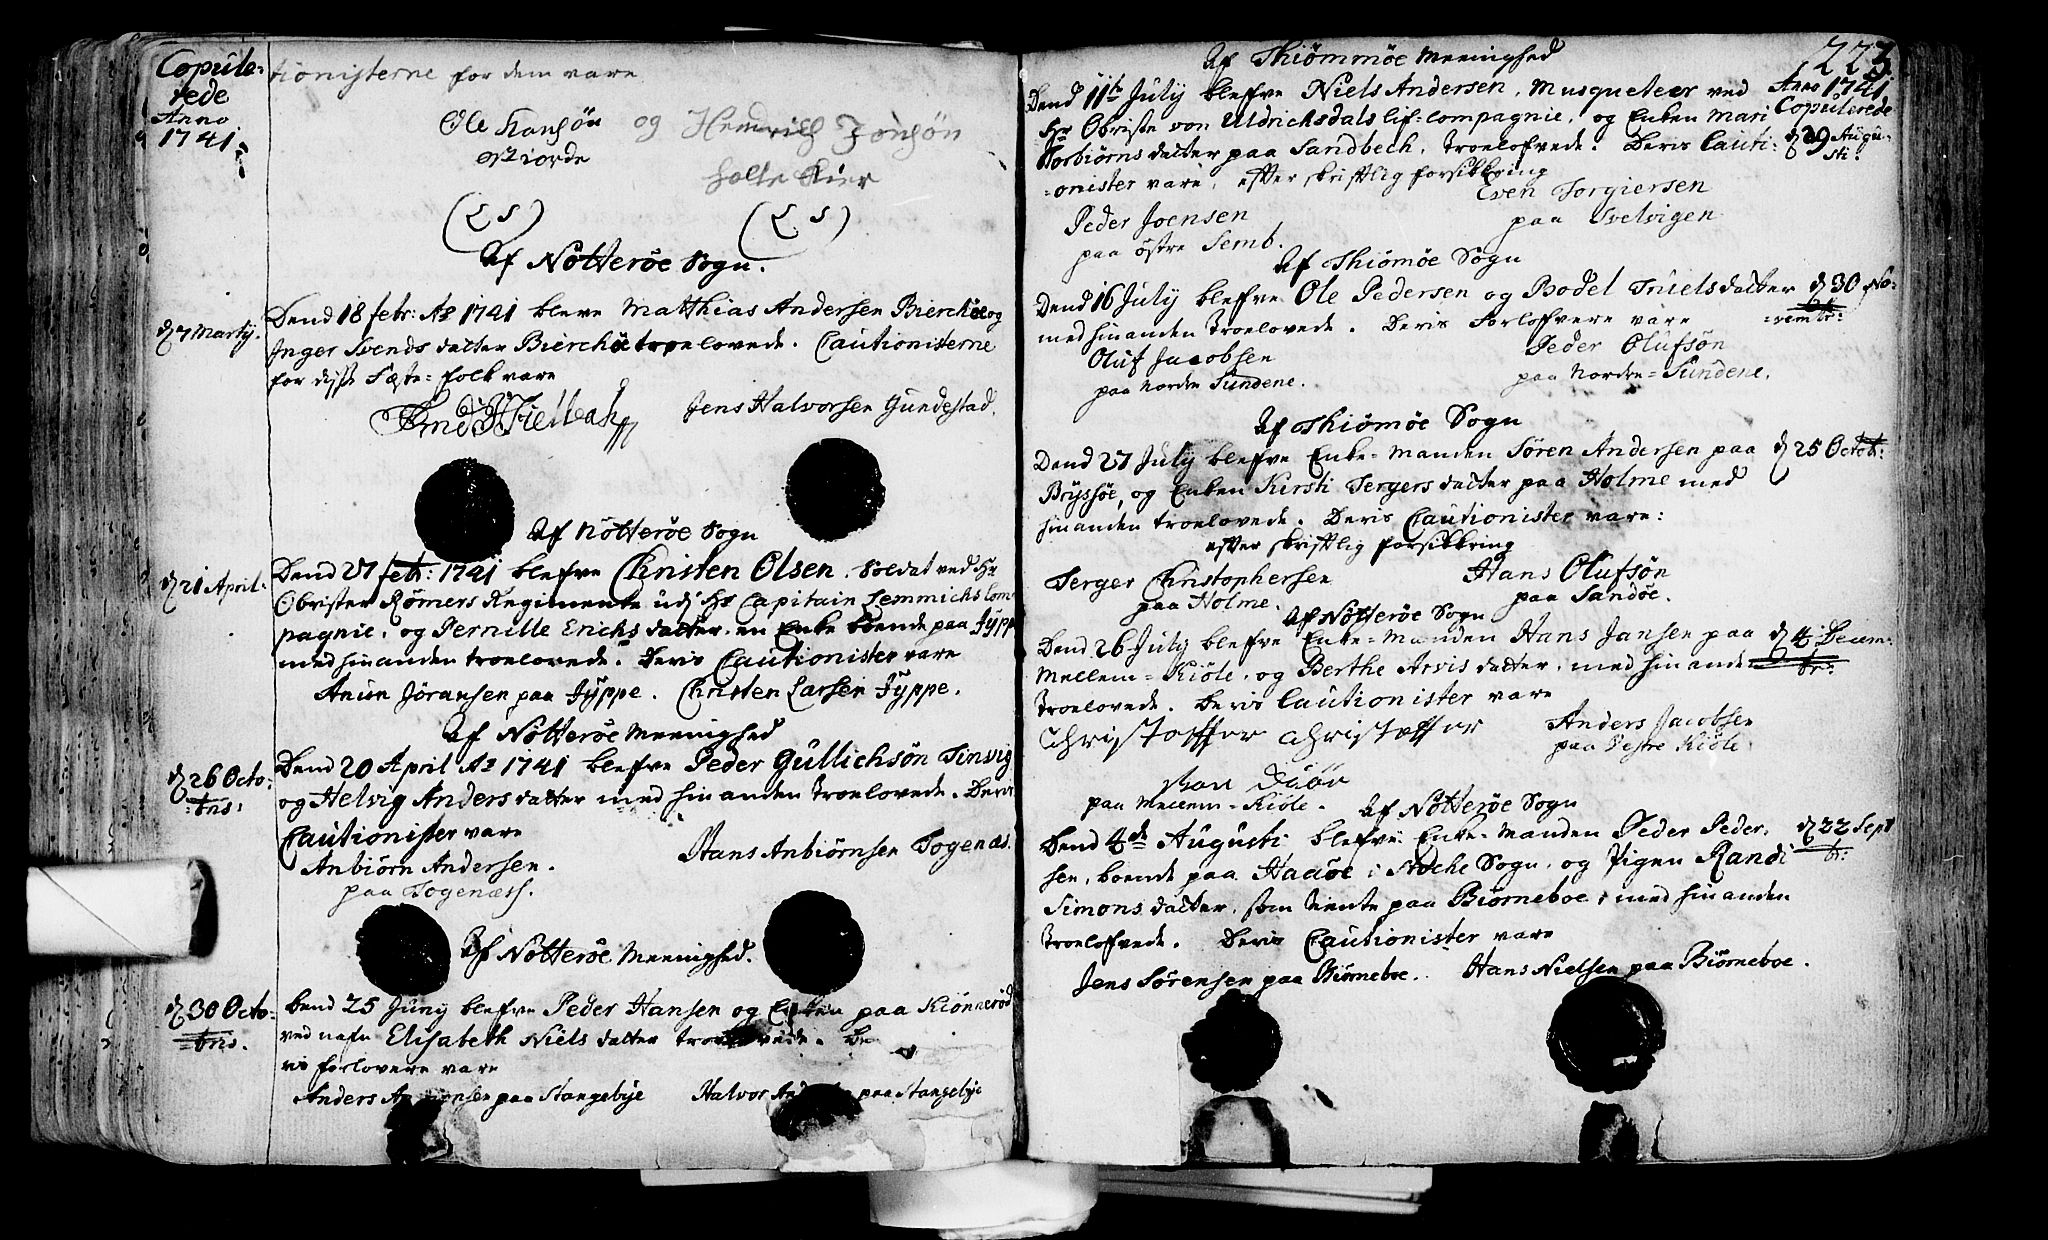 Copule-
rede
Anno
1741.
tionisterne for dem vare
Ole Hansøn og Hemrich Jonsøn
holte kier
(L S) (L S)
Af Nötterøe Sogn.
d 7 Martij.
Dend 18 febr: Ao 1741 bleve Matthias Andersen Bierchøe og
Inger Svends datter Bierchøe troelovede. Cautionisterne
for disse Fæste-folk vare
Jens Halvorsen Gundestad.
Af Nötterøe Sogn
d 21 April.
Dend 27 febr: 1741 blefve Christen Olsen, Soldat ved Hr
Obrister Rømers Regimente udj Hr Capitain Lemmichs Com-
pagnie, og Pernille Erichs datter, en Enke boende paa Jÿppe
med hinanden troelovede. Deris Cautionister vare
Anion Jöransen paa Jÿppe. Christen Larsen Jÿppe.
Af Nötterøe Meenighed
d 26 Octo-
bris:
Dend 20 April Ao 1741 blefve Peder Gullichsøn Tinvig
og Helvig Anders datter med hinanden troelovede. Deris
Cautionister vare
Anbiörn Andersen. Hans Anbiörnsen Togenæs.
paa Togenæss.
Af Nötterøe Meenighed.
d 30 Octo-
bris.
Dend 25 Junij blefve Peder Hansen og Enken paa Kiönneröd
ved nafn Elisabeth Niels datter De
ris forlovere vare
Anders paa Stangebije Halvor paa Stangebije
223
Af Thiömmöe Meenighed
Anno 1741
Copulerede
d 29 Augu-
sti.
Dend 11te July blefve Niels Andersen, Musqueteer ved
Hr Obriste von Uldrichsdals lif-compagnie, og Enken Mari
Torbiörns datter paa Sandbech, troelofvede. Deris Cauti-
onister vare, efter skriftlig forsikkring
Peder Joensen Even Torgiersen
paa östre Semb. paa Svelvigen
Af Thiömöe Sogn
d 30 No-
vembr:
Dend 16 July blefve Ole Pedersen og Bodel Truels datter
med hinanden troelovede. Deris Forlofvere vare
Oluf Jacobsen Peder Olufsøn
paa norden Sundene. paa norden-Sundene.
Af Thiömöe Sogn
d 25 Octob:
Dend 27 July blefve Enke-manden Sören Andersen paa
Brÿssöe, og Enken Kirsti Tergers datter paa Holme med
hinanden troelovede. Deris Cautionister vare:
efter skriftlig forsikkring
Terger Christophersen Hans Olufsøn
paa Holme. paa Sandöe.
Af Nötteröe Sogn
d 4 Decem-
br:
Dend 26 July blefve Enke-manden Hans Jansen paa
Mellem-Kiöle, og Berthe Arvis datter, med hinanden
troelovede. Deris Cautionister vare
Christoffer Christoffer Anders Jacobsen
paa Vestre Kiöle
paa Mellem-Kiöle.
Af Nötteröe Sogn
d 22 Sept
br:
Dend 4de Augusti blefve Enke-manden Peder Peder-
sen, boende paa Haaöe i Stoche Sogn, og Pigen Randi
Simons datter, som tiente paa Biörneboe, med hinanden
troelofvede. Deris Cautionister vare
Jens Sörensen paa Biörneboe. Hans Nielsen paa Biörneboe.